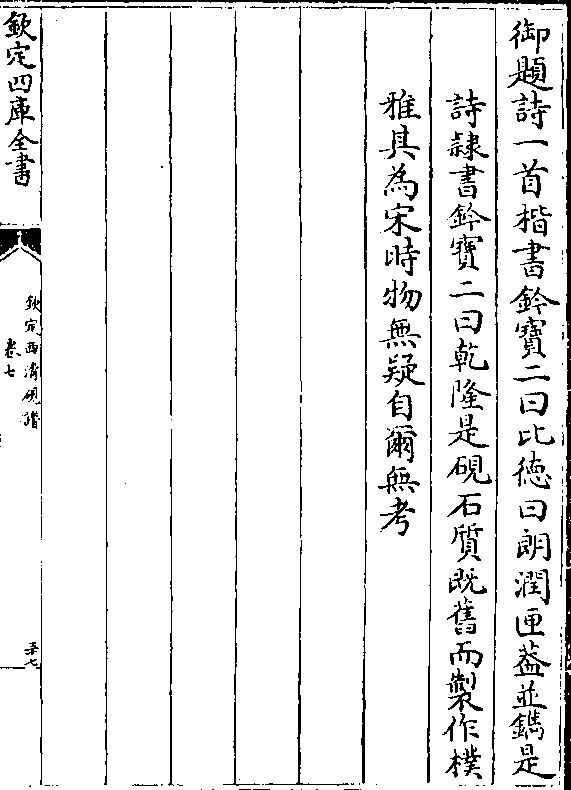 御題詩一首楷書鈐寶二曰比徳曰朗潤匣葢並鐫是
詩隷書鈐寶二曰乾隆是硯石質既舊而製作樸
雅其為宋時物無疑自爾無考
欽定四庫全書
欽定西清硯譜
卷七
五十七